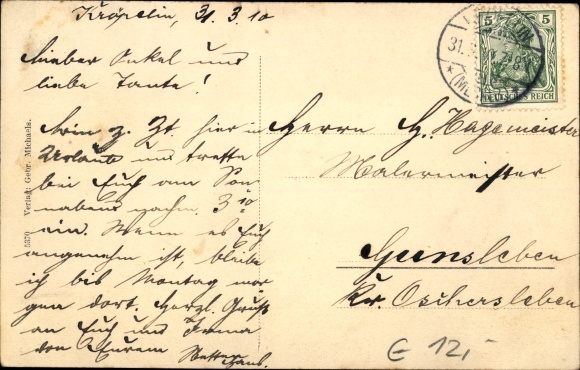 Kröpelin, 31. 3. 10
Lieber Onkel und
liebe Tante!
Bin z. Zt. hier in
Urlaub und treffe
bei Euch am Son-
nabend nachm. 3 10
ein. Wenn es Euch
angenehm ist, bleibe
ich bis Montag mor
gen dort. Herzl. Gruß
an Euch und Irma
von Eurem Neffen
Hans.
Herrn H. Hagemeister
Malermeister
Gunsleben
Kr. Oschersleben
5 5
DEUTSCHES REICH
31.
5370 Verlag: Gebr. Michaels.
€ 12,-